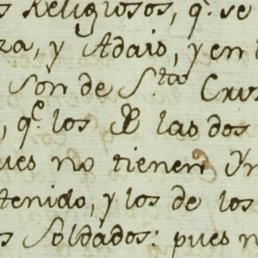 s Religiosos, q.e se
za, y Adais, y en l
son de S.ta Cruz
, q.e los PP las dos
ues no tienen Yn
tenido, y los de los
s Soldados: pues n